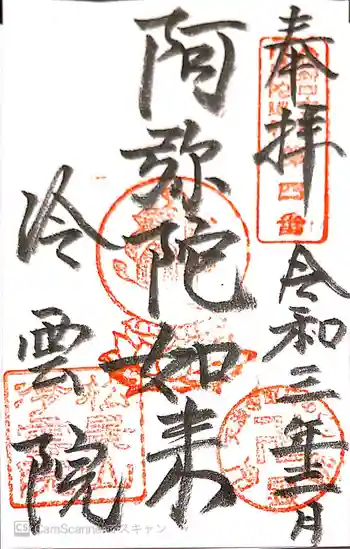 奉拝
令和三年十二月
阿弥陀如来
冷雲院
CS CamScannerでスキャン